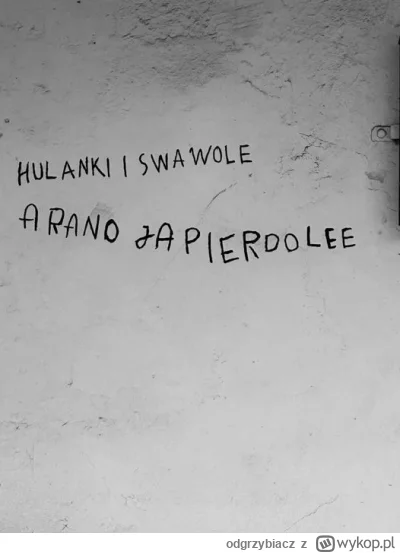 HULANKI I SWAWOLE
A RANO JA PIERDOLEE
odgrzybiacz z wykop.pl